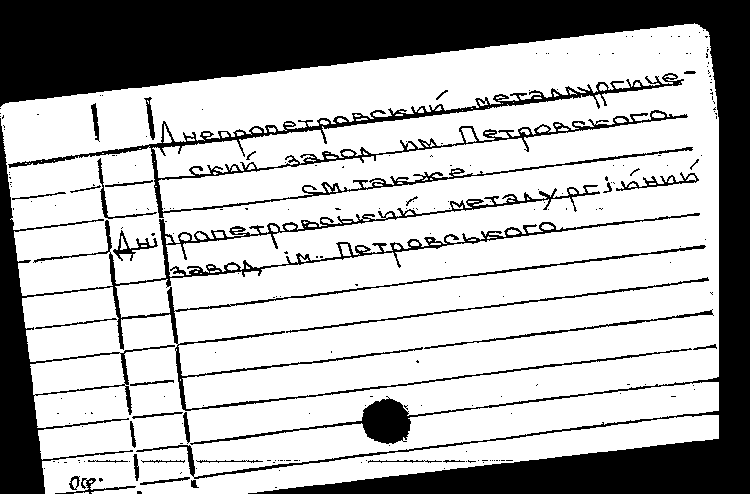 Днепропетровский металлургиче-
ский завод им. Петровского.
см. также.
Дніпропетровський металургійний
завод ім. Петровського.